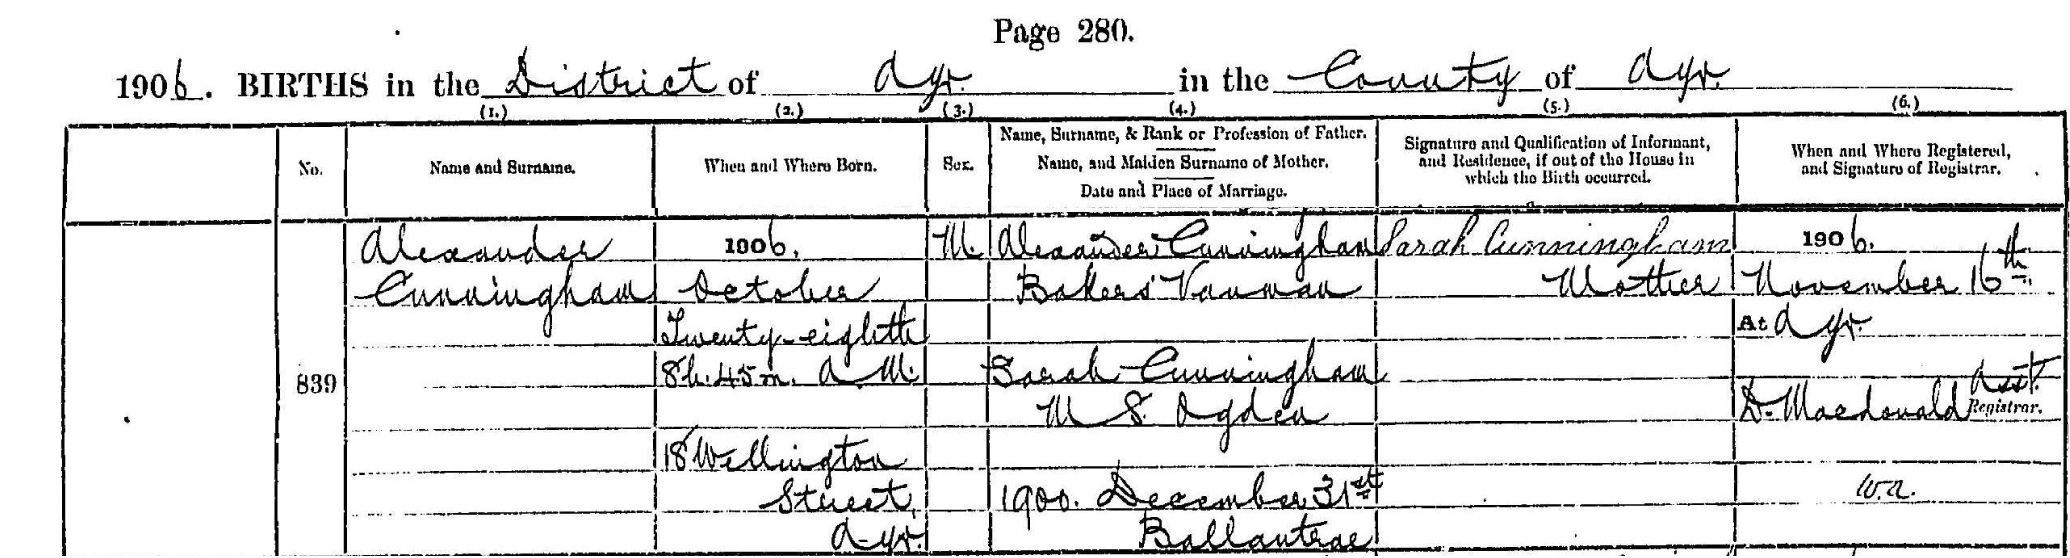 Page 280.
1906. BIRTHS in the District of Ayr. in the County of Ayr.
(1.) (2.) (3.) (4.) (5.) (6.)
No.
Name and Surname.
When and Where Born.
Sex.
Name, Surname, & Rank or Profession of Father.
Name, and Maiden Surname of Mother.
Date and Place of Marriage.
Signature and Qualification of Informant,
and Residence, if out of the House in
which the Birth occurred.
When and Where Registered,
and Signature of Registrar.
839
Alexander
Cunningham
1906.
October
Twenty-eighth
8h. 45m. A.M.
18 Wellington
Street,
Ayr.
M.
Alexander Cunningham
Bakers' Vanman
Sarah Cunningham
M.S. Ogden
1900. December 31st
Ballantrae
Sarah Cunningham
Mother
1906.
November 16th
At Ayr.
Asst.
D. Macdonald Registrar.
W.A.